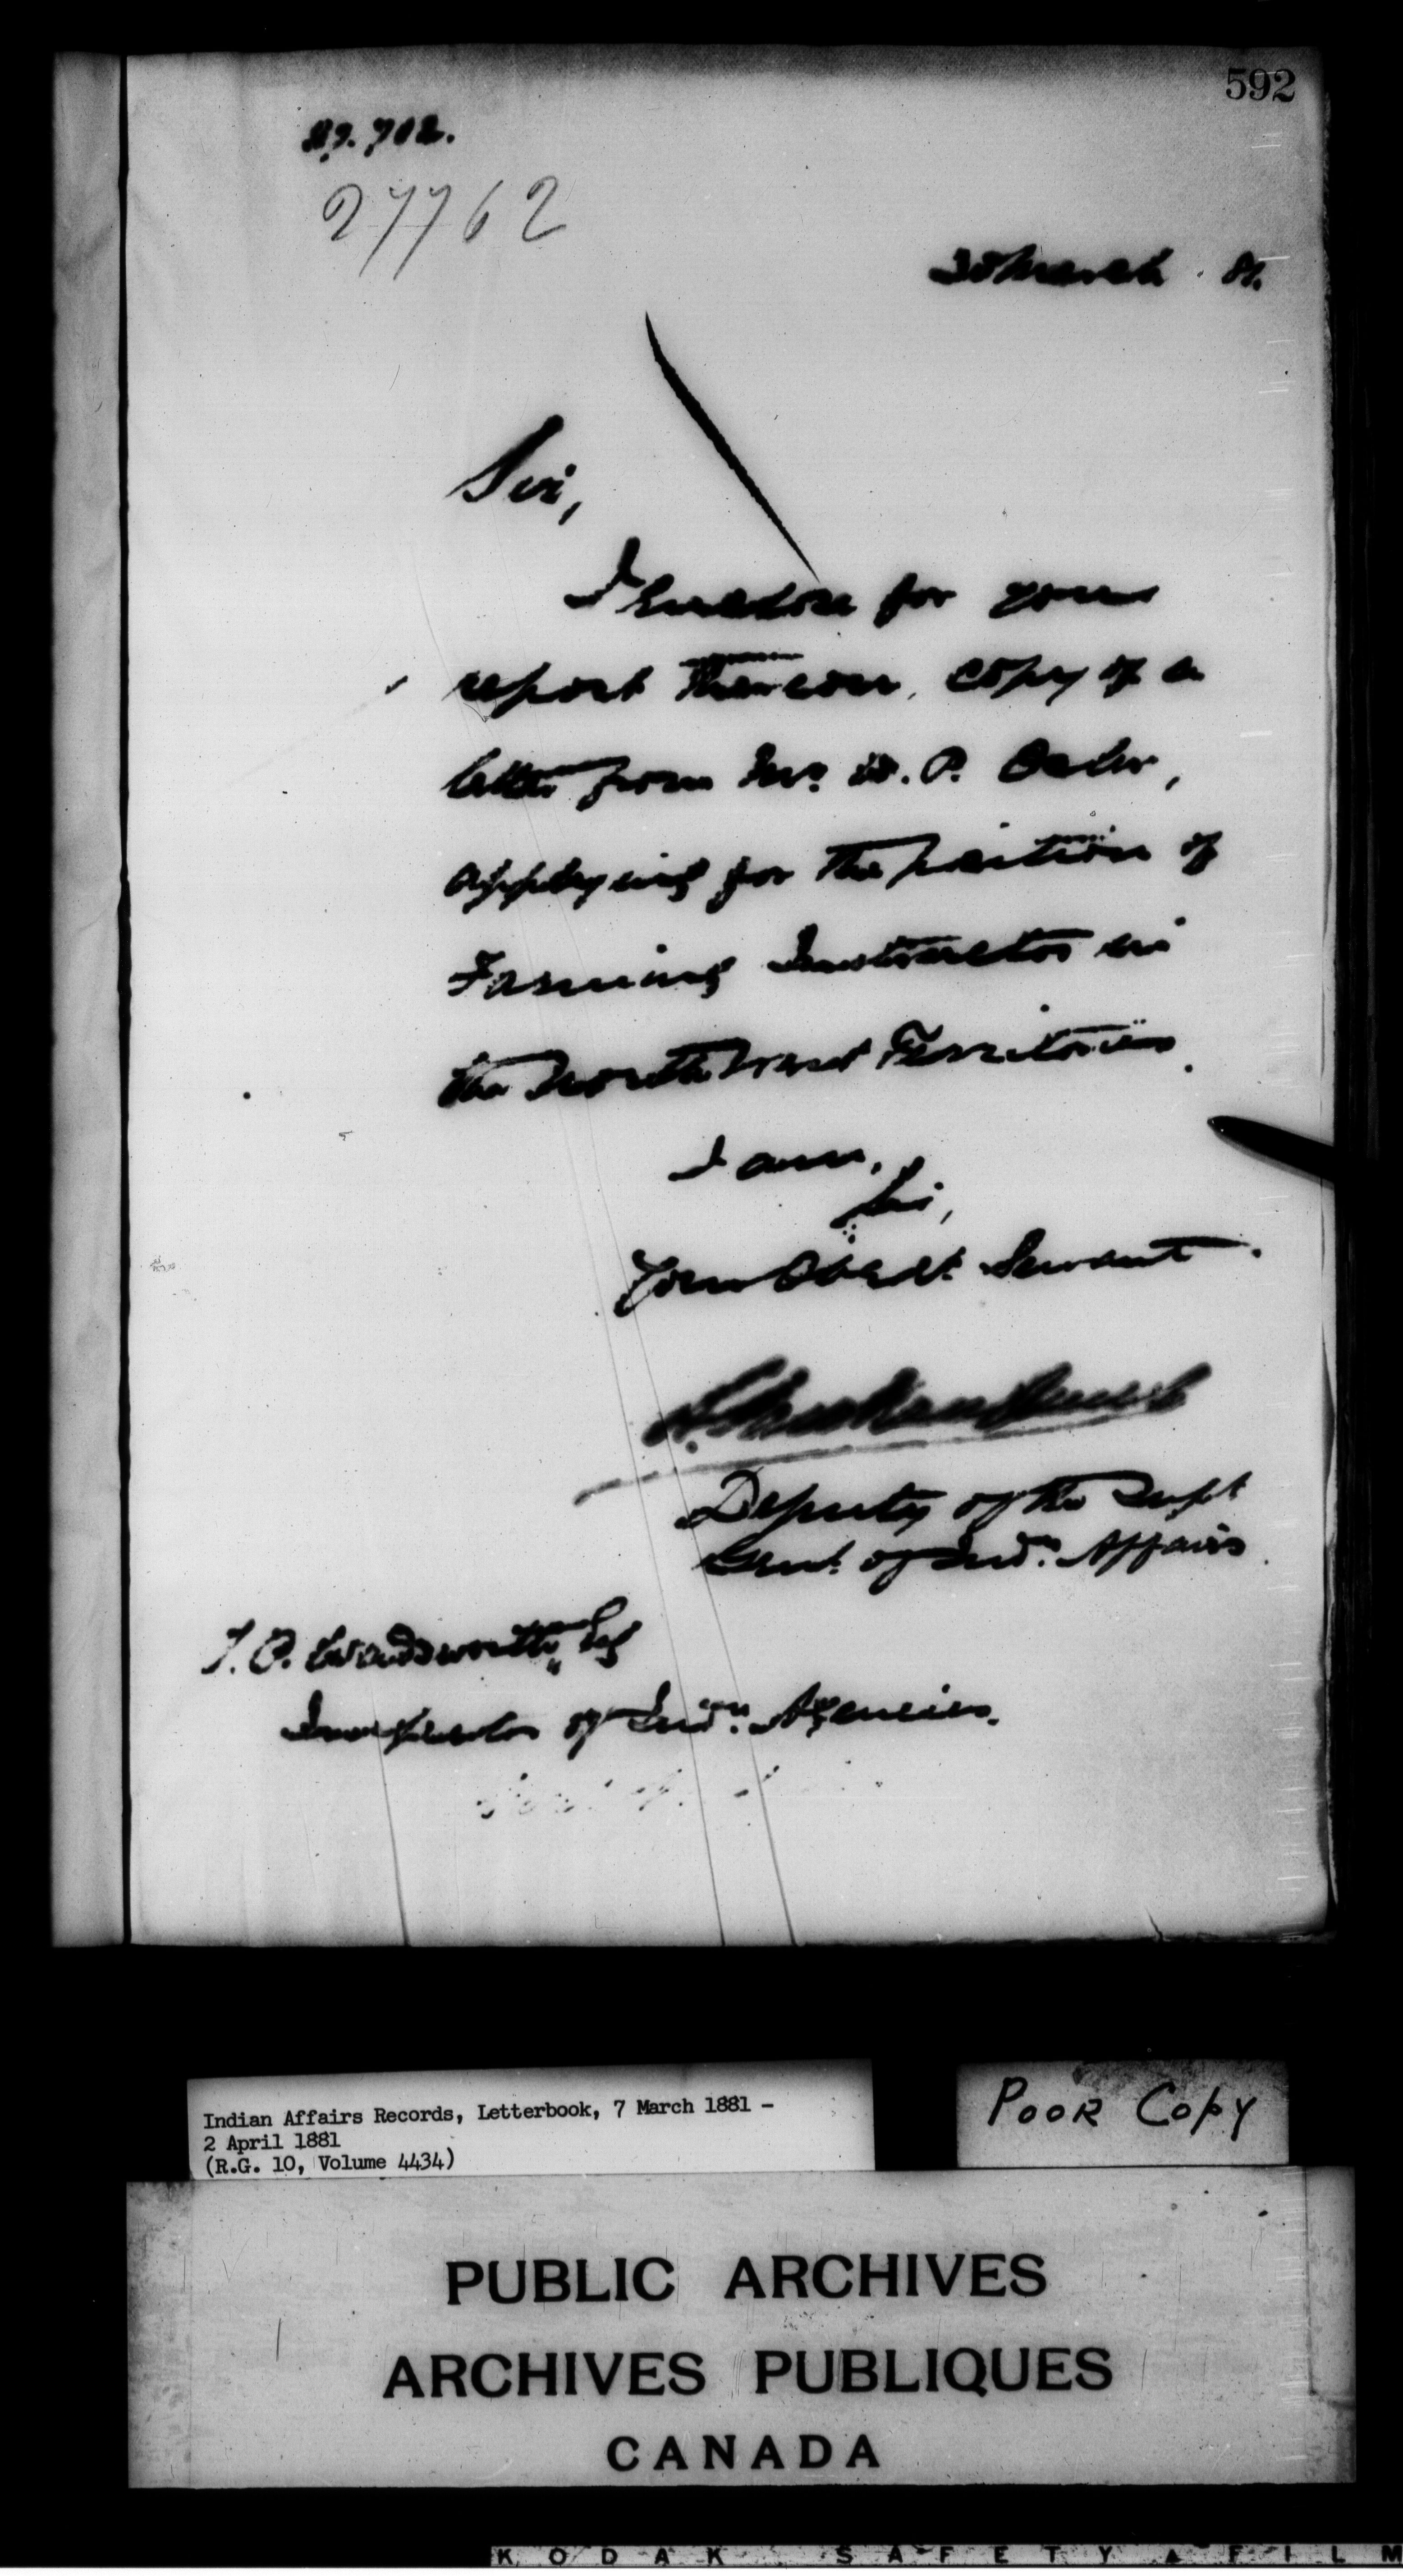 592
27762
30 March 81.
Sir,
I enclose for your
report thereon, copy of a
letter from Mr. W. P.
applying for the position of
Farming Instructor in
the North West Territories.
I am,
Sir,
Your Obedt. Servant.
Deputy of the Supt
Genl. of Indn. Affairs
T. P. Wadsworth, Esq
Inspector of Indn. Agencies.
Indian Affairs Records, Letterbook, 7 March 1881 -
2 April 1881
(R.G. 10, Volume 4434)
POOR COPY
PUBLIC ARCHIVES
ARCHIVES PUBLIQUES
CANADA
KODAK SAFETY FILM